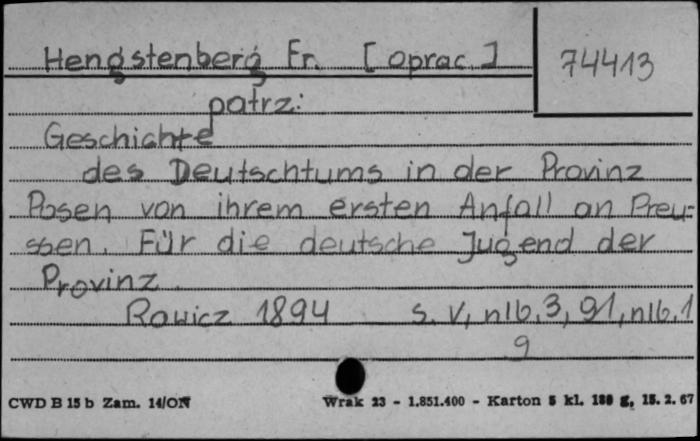 Hengstenberg Fr. [oprac.]
74413
patrz:
Geschichte
des Deutschtums in der Provinz
Posen von ihrem ersten Anfall an Preu-
ssen. Für die deutsche Jugend der
Provinz.
Rawicz 1894 s. V, nlb. 3, 91, nlb. 1
9
CWD B 15 b Zam. 14/ON Wrak 23 - 1.851.400 - Karton 5 kl. 180 g, 15. 2. 67